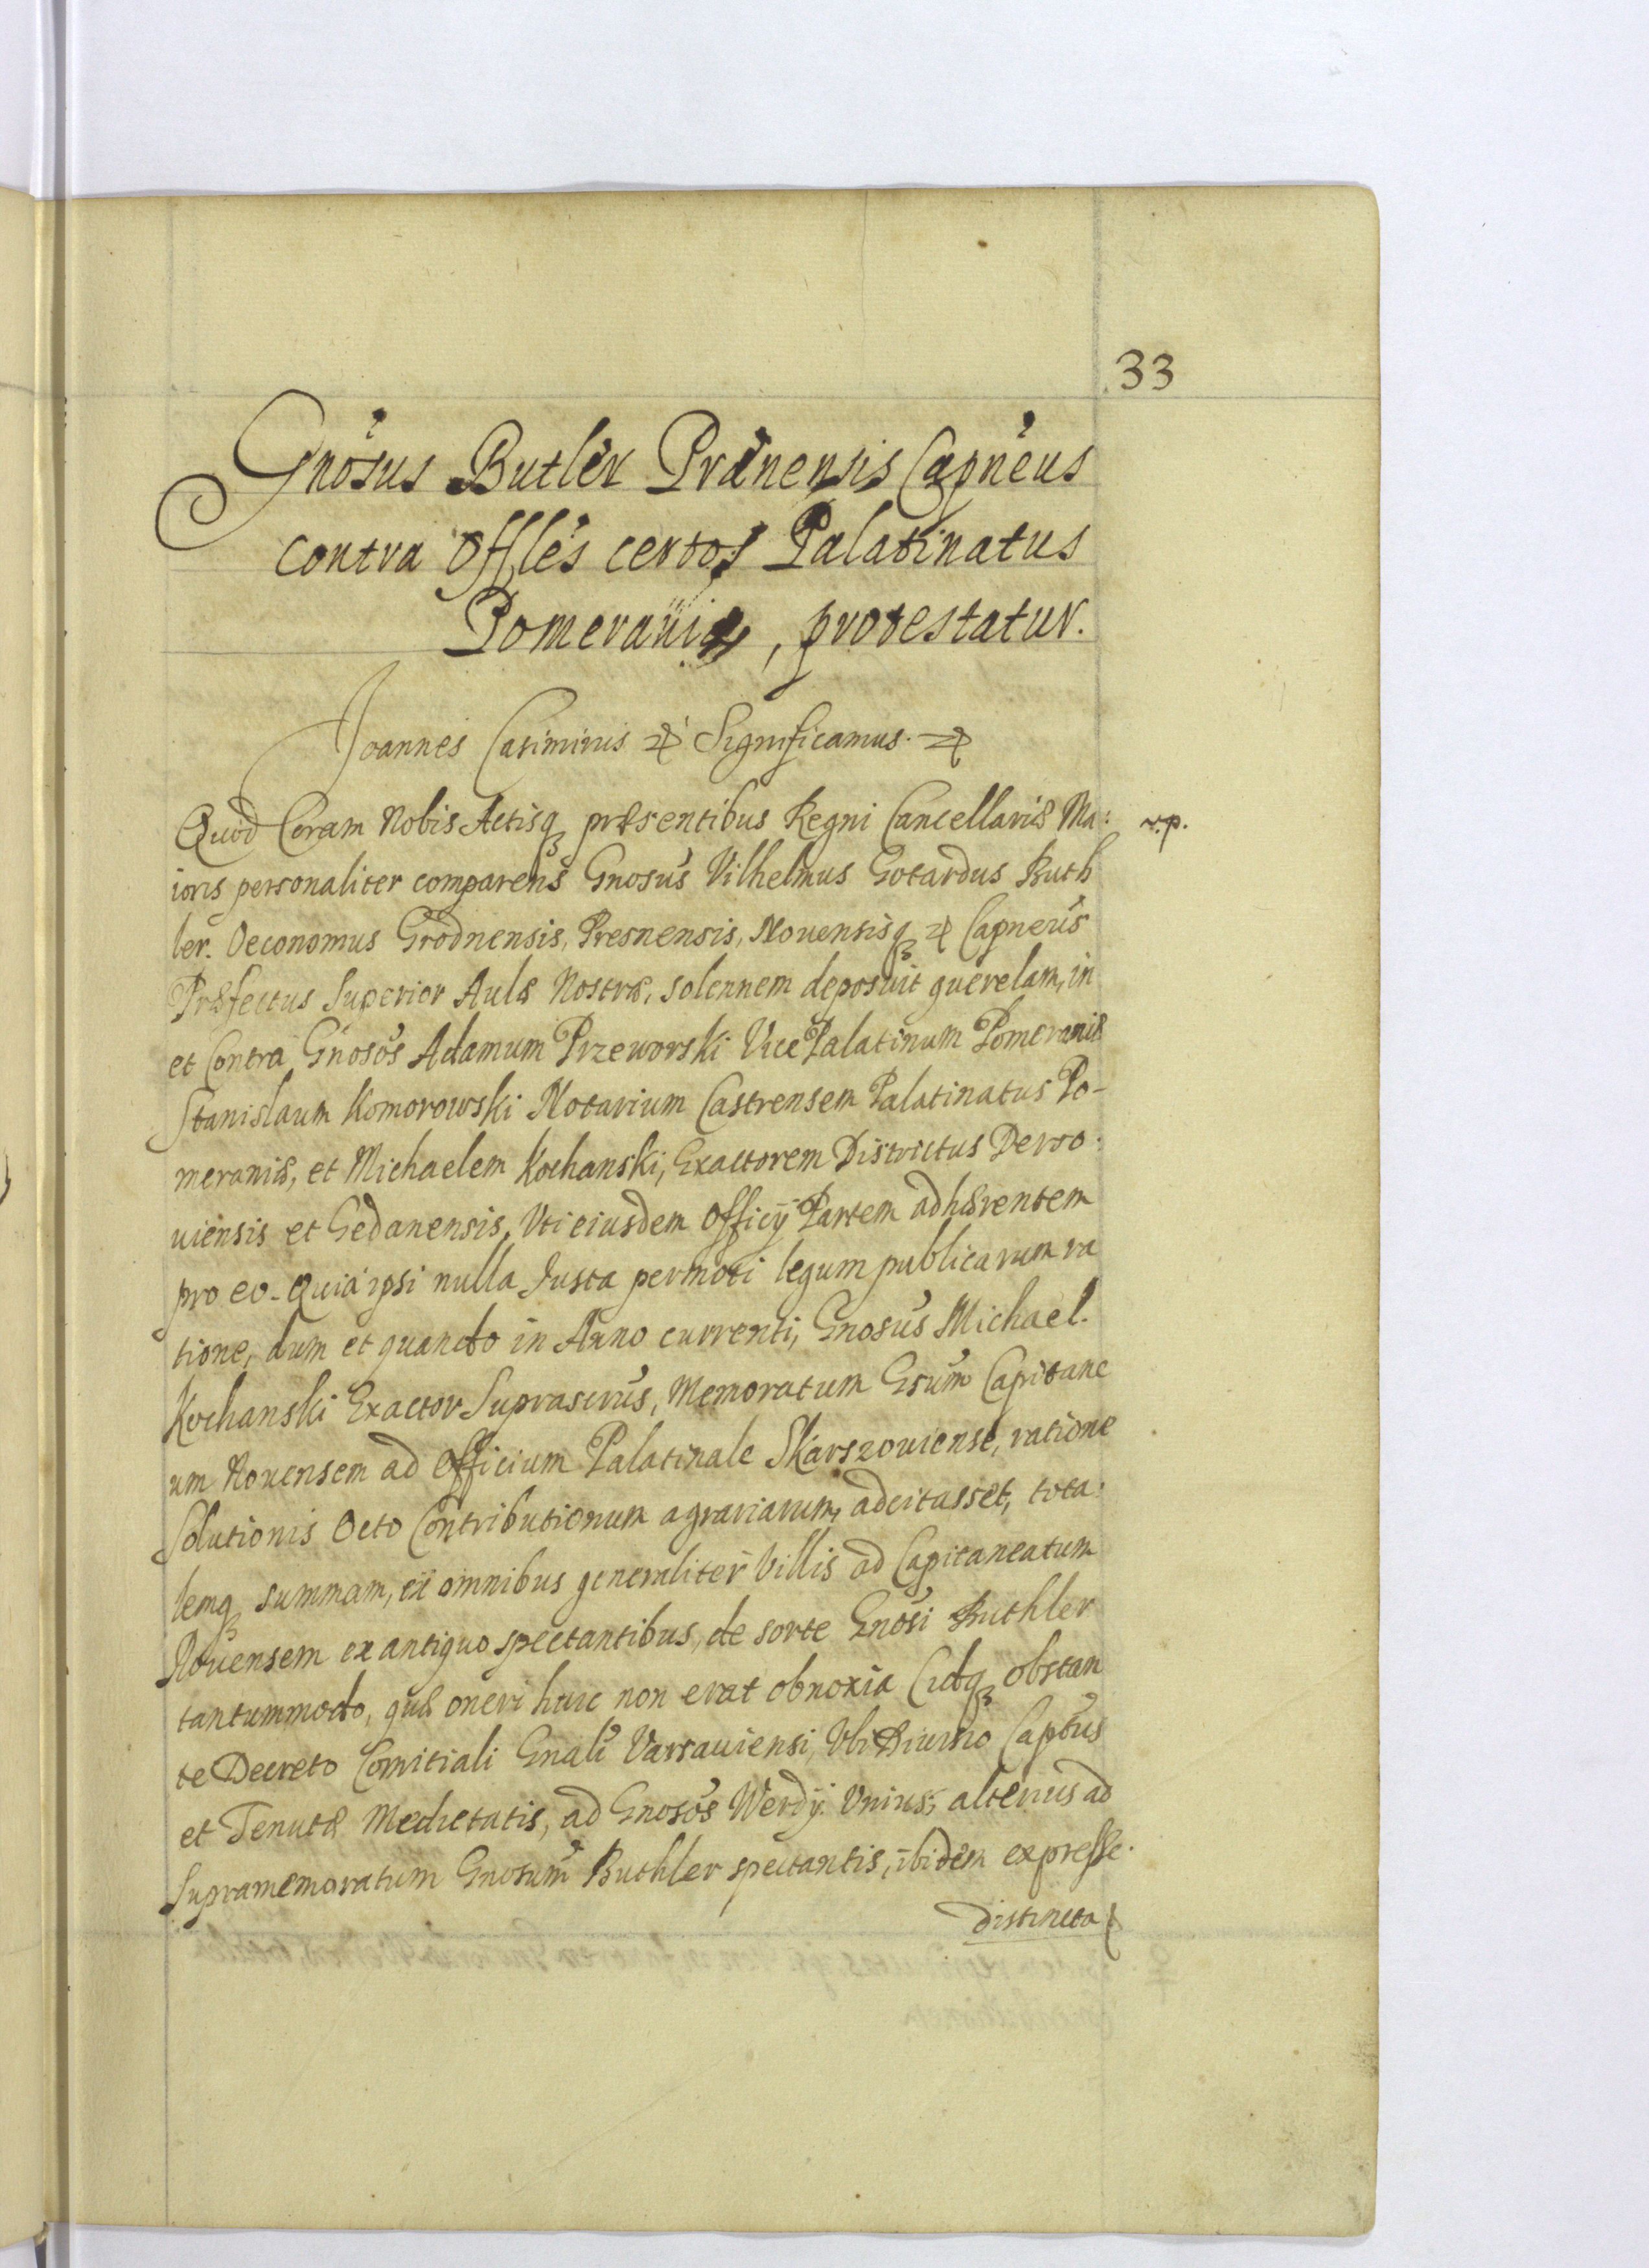 33
Gnosus Butler Prænensis Capneus
contra Offles certos Palatinatus
Pomeraniæ, protestatur.
Joannes Casimirus &c Significamus. &c
Quod Coram Nobis Actisq, præsentibus Regni Cancellariæ Ma:
r.p.
ioris personaliter comparens Gnosus Vilhelmus Gotardus Buth
ler. Oeconomus Grodnensis, Presnensis, Nouensisq, &c Capneus
Præfectus Superior Aulæ Nostræ, solennem deposuit querelam, in
et Contra Gnosos Adamum Przeworski Vice Palatinum Pomeraniæ
Stanislaum Komorowski Notarium Castrensem Palatinatus Po-
meraniæ, et Michaelem Kochanski, Exactorem Districtus Derso:
uiensis et Gedanensis, Vti eiusdem Officij Partem adhærentem
pro eo. Quia ipsi nulla Justa permoti legum publicarum ra
tione, dum et quando in Anno currenti, Gnosus Michael.
Kochanski Exactor Suprascrus, Memoratum Gsum Capitane
um Nouensem ad Officium Palatinale Skarszouiense, ratione
Solutionis Octo Contributionum agrariarum, adcitasset, tota:
lemq, summam, ex omnibus generaliter Villis ad Capitaneatum
Nouensem ex antiquo spectantibus, de sorte Gnosi Buthler
tantummodo, quæ oneri huic non erat obnoxia (idq, obstan
te Decreto Comitiali Gnali Varsauiensi, Vbi Captus
et Tenutæ Medietatis, ad Gnosos Werdÿ. Vnius, alterius ad
Supramemoratum Gnosum Buthler spectantis, ibidem expresse.
distincta)